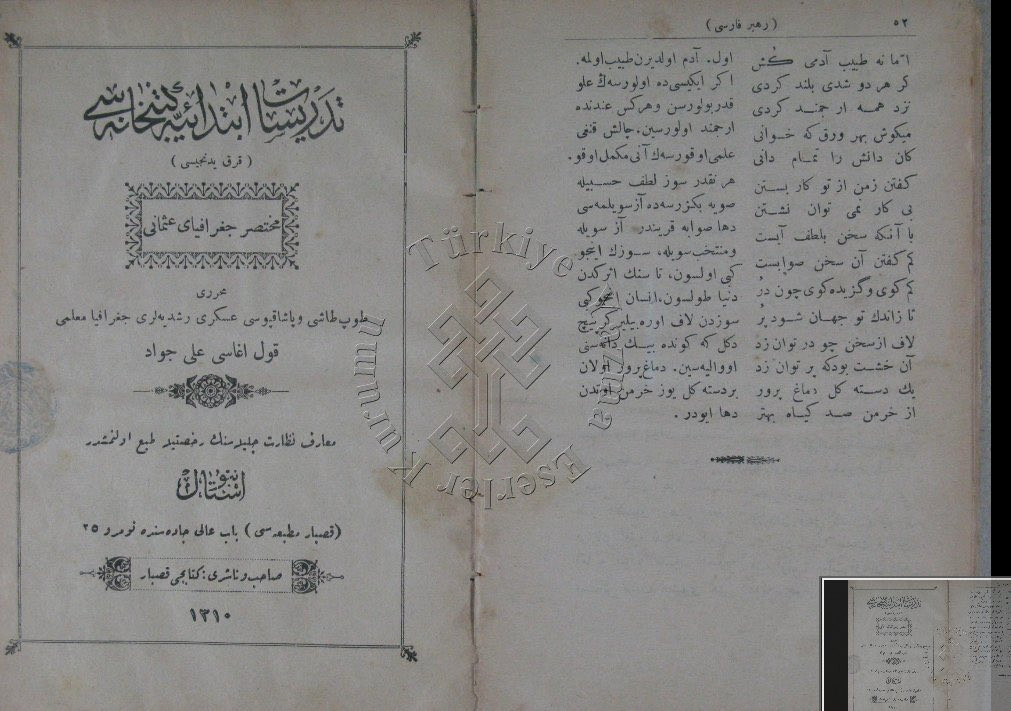 ٥٢
( رهبر فارسی )
اما نه طبیب آدمی کُش
کر هر دو شدی بلند کردی
نزد همه ارجمند کردی
میکوش بهر ورق که خوانی
کان دانش را تمام دانی
کفتن زمن از تو کار بستن
بی کار نمی توان نشستن
با آنکه سخن بلطف آبست
کم کفتن آن سخن صوابست
کم کوی وگزیده کوی چون دُر
تا زاندك تو جهان شود پُر
لاف از سخن چو در توان زد
آن خشت بود که پر توان زد
یك دسته کل دماغ پرور
از خرمن صد کیاه بهتر
اول. آدم اولدیرن طبیب اولمه.
اکر ایکیسی ده اولورسه‌ڭ علو
قدر بولورسن وهرکس عندنده
ارجمند اولورسین. چالش قنغی
علمی اوقورسه‌ڭ آنی مکمل اوقو.
هر نقدر سوز لطف حسبیله
صویه بکزرسه‌ده آز سویلمه‌سی
دها صوابه قریبدر. آز سویله
ومنتخب سویله، سوزڭ اینجو
کبی اولسون، تا سنڭ اثرکدن
دنیا طولسون، انسان اینجو کبی
سوزدن لاف اوره بیلیر کرپیچ
دکل که کونده بیڭ دانه‌سنی
دماغ پرور اولان
بر دسته کل یوز خرمن اوتدن
دها ایودر.
تدریسات ابتدائیه کتبخانه سی
( قرق یدنجیسی )
مختصر جغرافیای عثمانی
محرری
طوپ طاشی و پاشاقپوسی عسکری رشدیه‌لری جغرافیا معلمی
قول اغاسی علی جواد
معارف نظارت جلیله سنك رخصتیله طبع اولنمشدر
استانبول
(قصبار مطبعه سی) باب عالی جاده سنده نومرو ٢٥
صاحب و ناشری: کتابجی قصبار
١٣١٠
Türkiye Yazma Eserler Kurumu